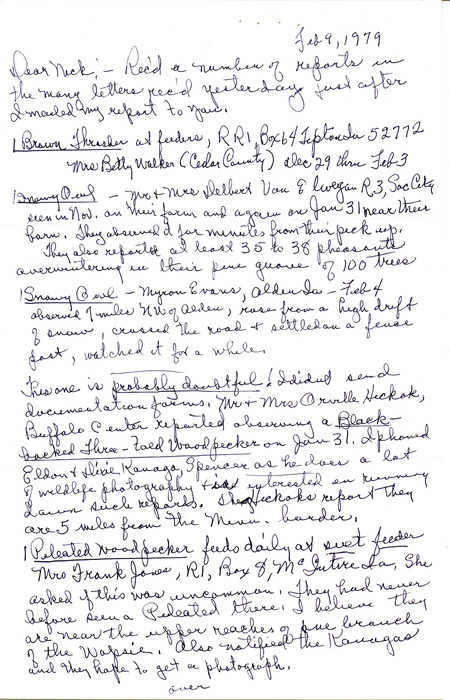 Feb 9, 1979
Dear Nick: - Rec'd a number of reports in
the many letters rec'd yesterday just after
I mailed my report to you.
1 Brown Thrasher at feeders, RR1, Box 64 Tipton Ia 52772
Mrs Betty Walker (Cedar County) Dec 29 thru Feb 3
1 Snowy Owl - Mr & Mrs Delbert Van E R3, Sac City
seen in Nov. on their farm and again on Jan 31 near their
barn. They observed it for minutes from their pick up.
They also reported at least 35 to 38 pheasants
overwintering in their pine of 100 trees
1 Snowy Owl - Myron Evans, Alden Ia - Feb 4
observed 7 miles NW of Alden, rose from a high drift
of snow, crossed the road & settled on a fence
post, watched it for a while.
This one is probably doubtful! I didn't send
documentation forms. Mr & Mrs Orville Hickok,
Buffalo Center reported observing a Black-
backed Three-toed Woodpecker on Jan 31. I phoned
Eldon & Kanaga, Spencer as he does a lot
of wildlife photography & is interested in running
down such reports. Hickoks report they
are 5 miles from the Minn. border.
1 Pileated Woodpecker feeds daily at suet feeder
Mrs Frank Jones, R1, Box 8, McIntire Ia, She
asked if this was uncommon. They had never
before seen a Pileated there. I believe they
are near the upper reaches of one branch
of the Wapsie. Also notified the Kanagas
and they hope to get a photograph.
over